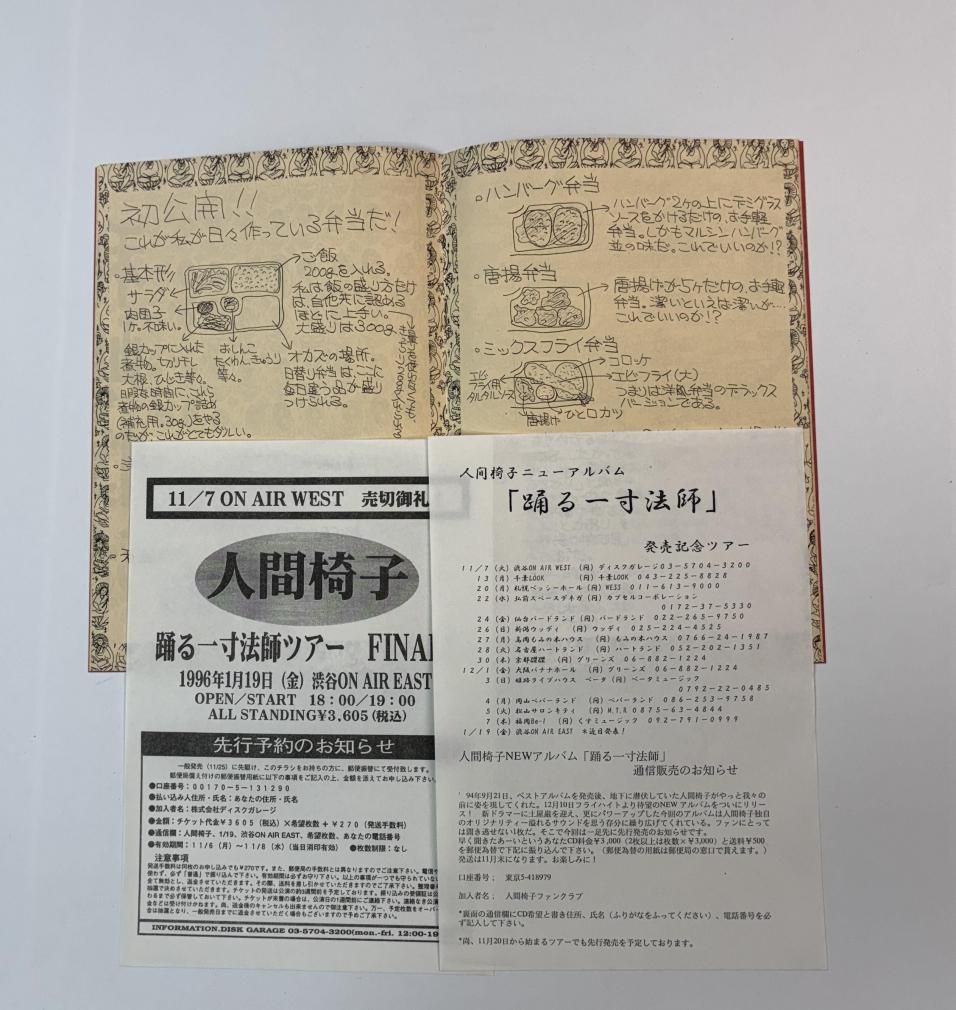 初公開!!
これが私が日々作っている弁当だ!
基本形
サラダ
肉団子
1ヶ。不味い。
ご飯
200gを入れる。
私は飯の盛り方だけ
は、自他共に認める
ほどに上手い。
大盛りは300g。
銀カップに入れた
煮物。切り干し
大根、ひじき等々。
暇な時間に、これら
煮物の銀カップ詰め
(補充用。30g)をやる
のだが、これがとてもタルい。
おしんこ
たくわん、きゅうり
等々。
オカズの場所。
日替り弁当は、ここに
毎日違う品が盛り
つけられる。
ハンバーグ弁当
ハンバーグ2ヶの上にデミグラス
ソースをかけるだけの、お手軽
弁当。しかもマルシンハンバーグ
並の味だ。これでいいのか!?
唐揚弁当
唐揚げが5ヶだけの、お手軽
弁当。潔いといえば潔いが…
これでいいのか!?
ミックスフライ弁当
コロッケ
エビフライ(大)
つまりは洋風弁当のデラックス
バージョンである。
エビ
フライ用
タルタルソース
唐揚げ
ひと口カツ
11/7 ON AIR WEST 売切御礼
人間椅子
踊る一寸法師ツアー FINAL
1996年1月19日(金)渋谷ON AIR EAST
OPEN/START 18:00/19:00
ALL STANDING¥3,605(税込)
先行予約のお知らせ
一般発売(11/25)に先駆け、このチラシをお持ちの方に、郵便振替にて受付致します。
郵便局備え付けの郵便振替用紙に以下の事項をご記入の上、金額を添えてお申し込み下さい。
●口座番号:00170-5-131290
●払い込み人住所・氏名:あなたの住所・氏名
●加入者名:株式会社ディスクガレージ
●金額:チケット代金¥3605(税込)×希望枚数+¥270(発送手数料)
●通信欄:人間椅子、1/19、渋谷ON AIR EAST、希望枚数、あなたの電話番号
●有効期間:11/6(月)〜11/8(水)(当日消印有効) ●枚数制限:なし
注意事項
INFORMATION.DISK GARAGE 03-5704-3200(mon.-fri. 12:00-19
人間椅子ニューアルバム
「踊る一寸法師」
発売記念ツアー
11/7(火)渋谷ON AIR WEST (問)ディスクガレージ03-5704-3200
13(月)千葉LOOK (問)千葉LOOK 043-225-8828
20(月)札幌ベッシーホール(問)WESS 011-613-9000
22(水)弘前スペースデネガ(問)カプセルコーポレーション
0172-37-5330
24(金)仙台バードランド(問)バードランド 022-265-9750
26(日)新潟ウッディ (問)ウッディ 025-224-4525
27(月)高岡もみの木ハウス (問)もみの木ハウス 0766-24-1987
28(火)名古屋ハートランド (問)ハートランド 052-202-1351
30(木)京都磔磔 (問)グリーンズ 06-882-1224
12/1(金)大阪バナナホール (問)グリーンズ 06-882-1224
3(日)姫路ライブハウス ベータ(問)ベータミュージック
0792-22-0485
4(月)岡山ペパーランド (問)ペパーランド 086-253-9758
5(火)松山サロンキティ (問)M.T.R 0875-63-4844
7(木)福岡Be-1 (問)くすミュージック 092-791-0999
1/19(金)渋谷ON AIR EAST *近日発表!
人間椅子NEWアルバム「踊る一寸法師」
通信販売のお知らせ
'94年9月21日、ベストアルバムを発売後、地下に潜伏していた人間椅子がやっと我々の
前に姿を現してくれた。12月10日フライハイトより待望のNEW アルバムをついにリリー
ス! 新ドラマーに土屋巌を迎え、更にパワーアップした今回のアルバムは人間椅子独自
のオリジナリティー溢れるサウンドを思う存分に繰り広げてくれている。ファンにとって
は聞き逃せない1枚だ。そこで今回は一足先に先行発売のお知らせです。
早く聞きたあーいというあなたCD料金¥3,000(2枚以上は枚数×¥3,000)と送料¥500
を郵便為替で下記に振り込んで下さい。(郵便為替の用紙は郵便局の窓口で貰えます。)
発送は11月末になります。お楽しみに!
口座番号; 東京5-418979
加入者名; 人間椅子ファンクラブ
*裏面の通信欄にCD希望と書き住所、氏名(ふりがなをふってください)、電話番号を必
ず記入して下さい。
*尚、11月20日から始まるツアーでも先行発売を予定しております。